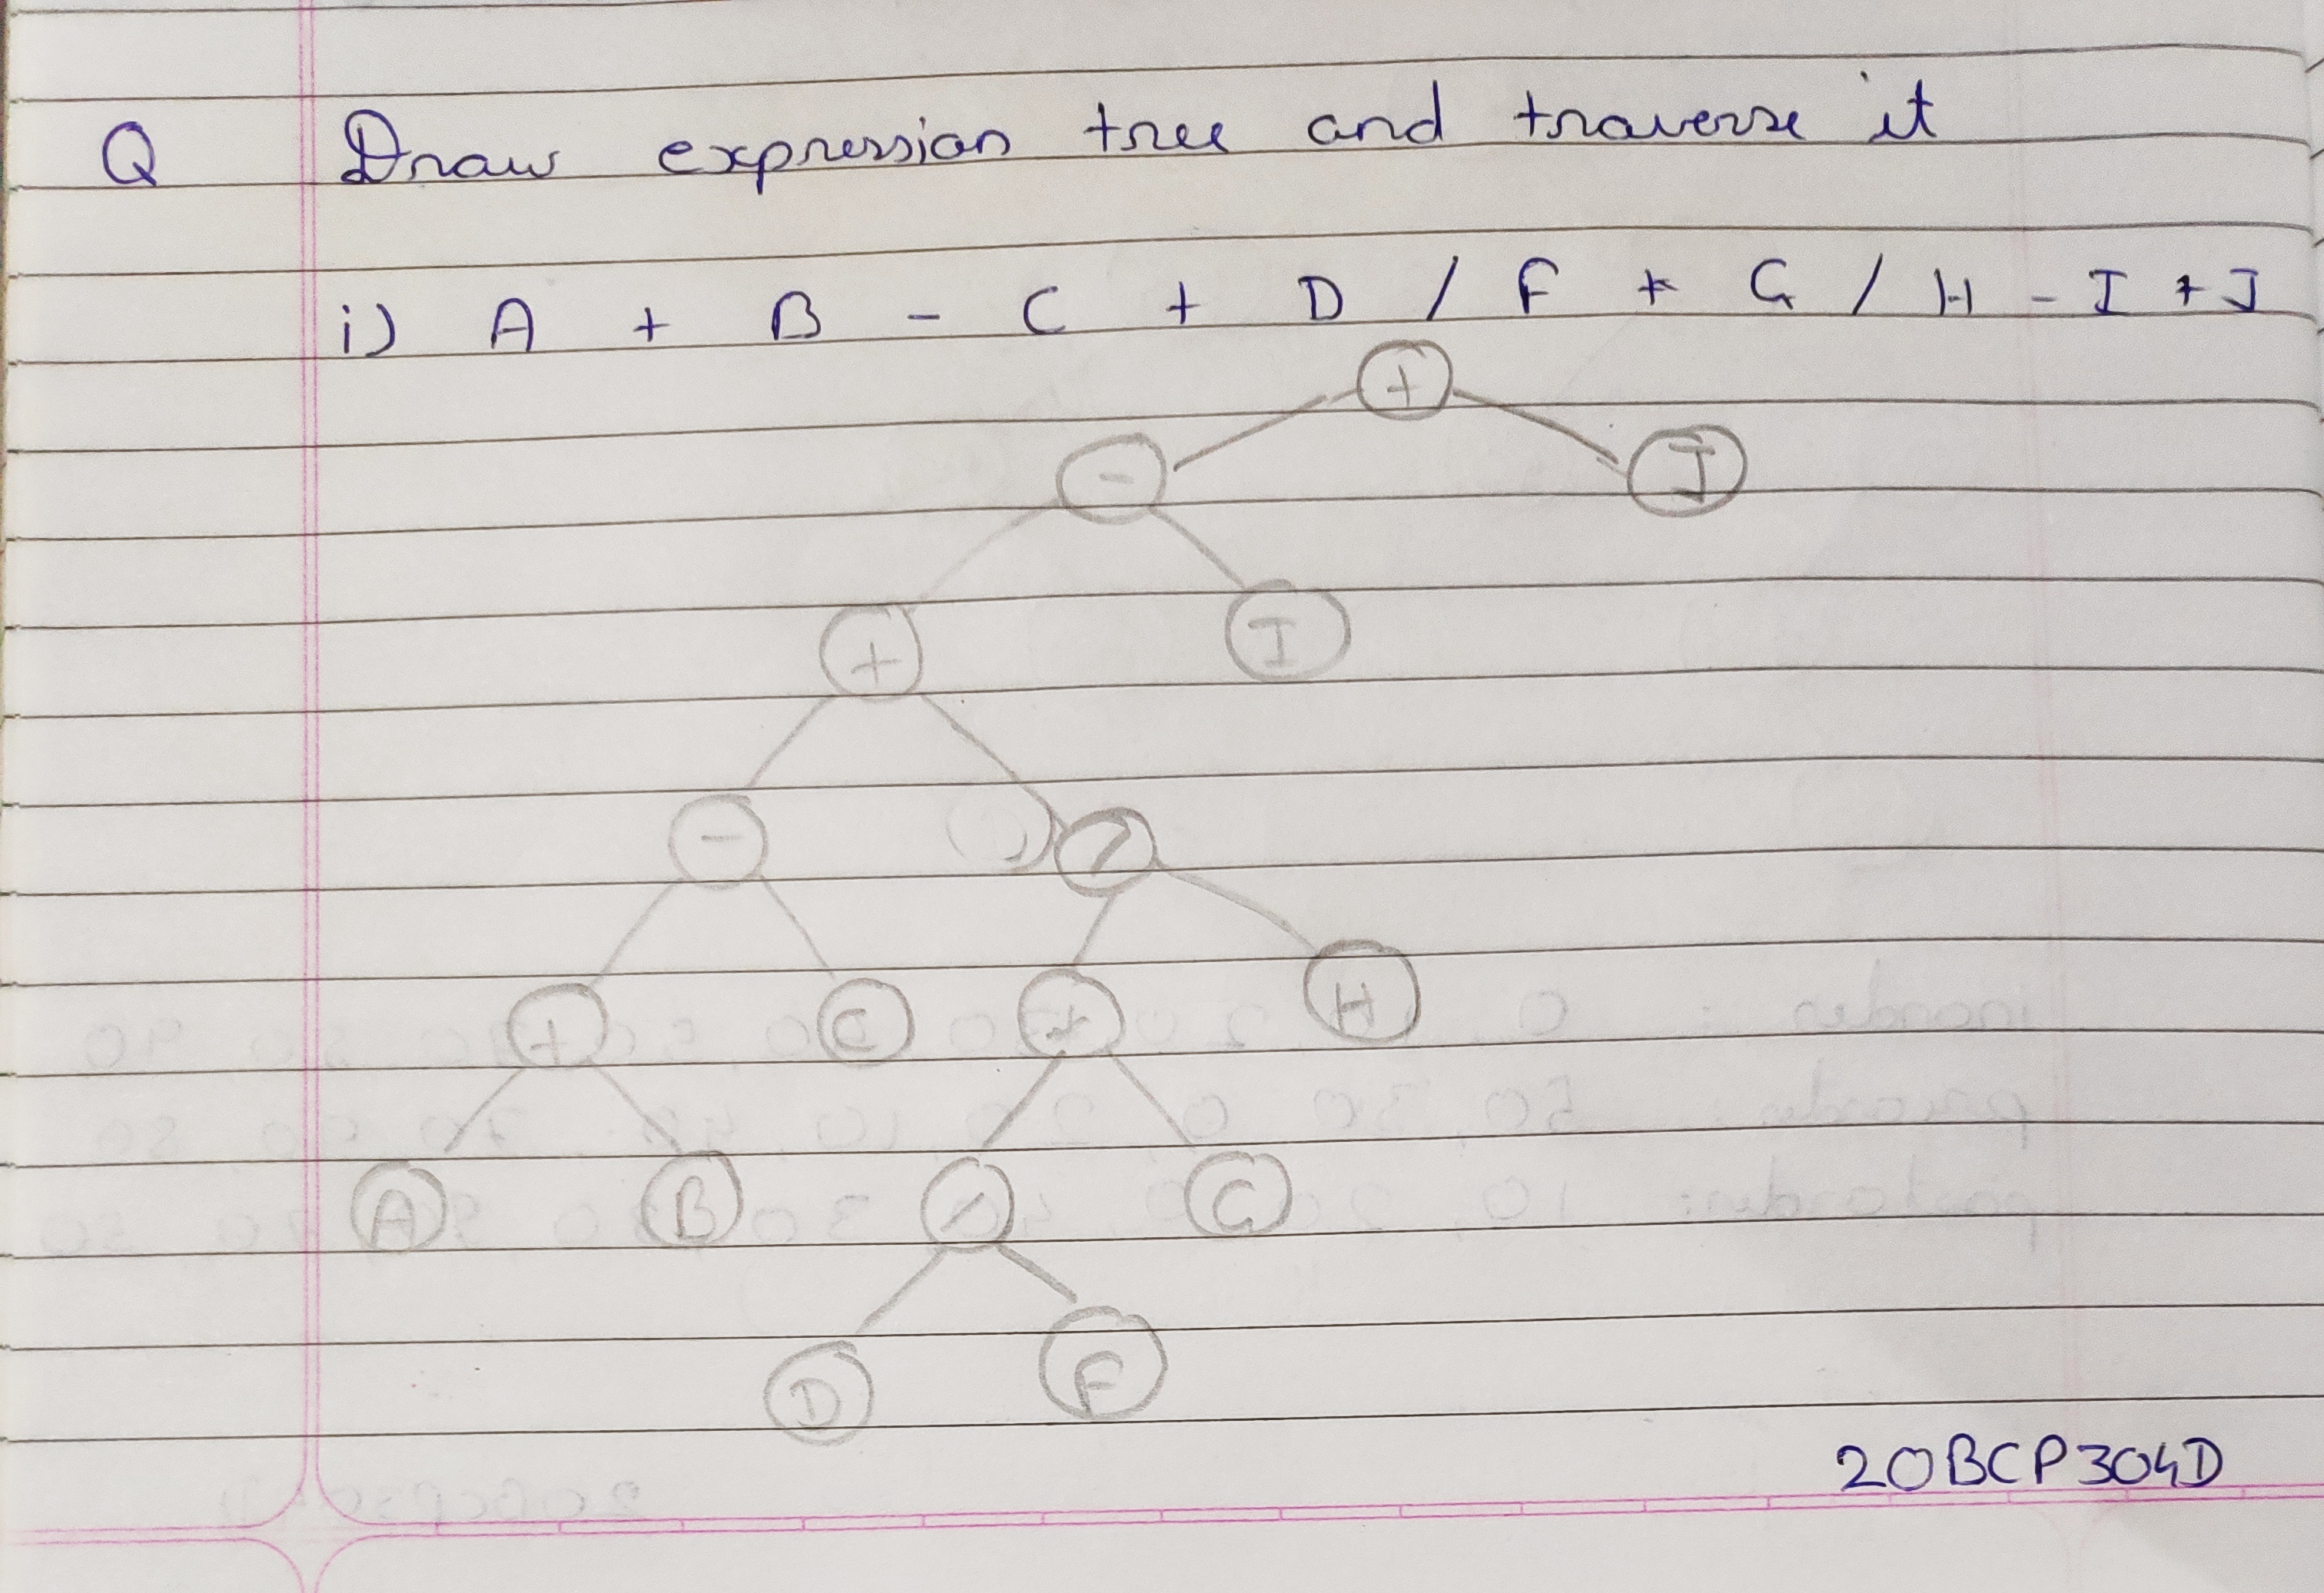 Q Draw expression tree and traverse it
i) A + B - C + D / F * G / H - I + J
+
- J
+ I
- /
+ C * H
A B / G
D F
20BCP304D